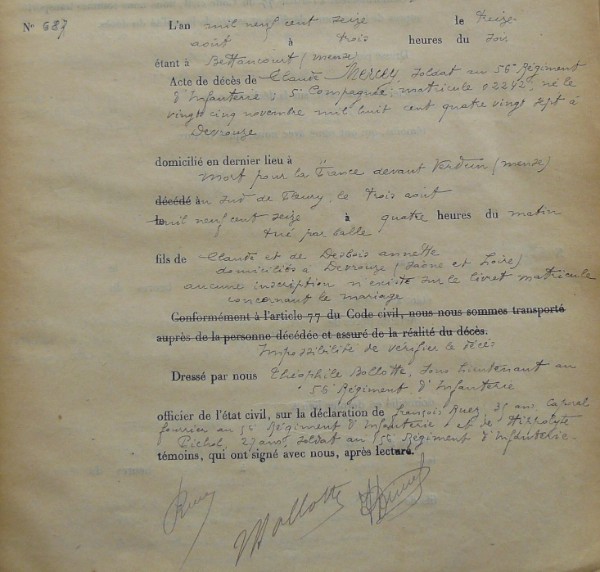 N° 687
L'an mil neuf cent seize le treize
août à trois heures du soir
étant à Bettancourt (meuse)
Acte de décès de Claude MERCEY, soldat au 56e Régiment
d'Infanterie, 5e Compagnie; matricule 02242, né le
vingt cinq novembre mil huit cent quatre vingt sept à
Devrouze
domicilié en dernier lieu à
Mort pour la France devant Verdun (meuse)
décédé à au Sud de Fleury, le trois août
le mil neuf cent seize à quatre heures du matin
tué par balle
fils de Claude et de Desbois annette
domiciliés à Devrouze (Saône et Loire)
aucune inscription n'existe sur le livret matricule
concernant le mariage
Conformément à l'article 77 du Code civil, nous nous sommes transporté
auprès de la personne décédée et assuré de la réalité du décès.
Impossibilité de vérifier le décès
Dressé par nous Théophile Bollotte, sous lieutenant au
56e Régiment d'Infanterie
officier de l'état civil, sur la déclaration de françois 35 ans, Caporal
fourrier au Régiment d'Infanterie et de Hippolyte
27 ans, soldat au Régiment d'Infanterie
témoins, qui ont signé avec nous, après lecture.
Bollotte